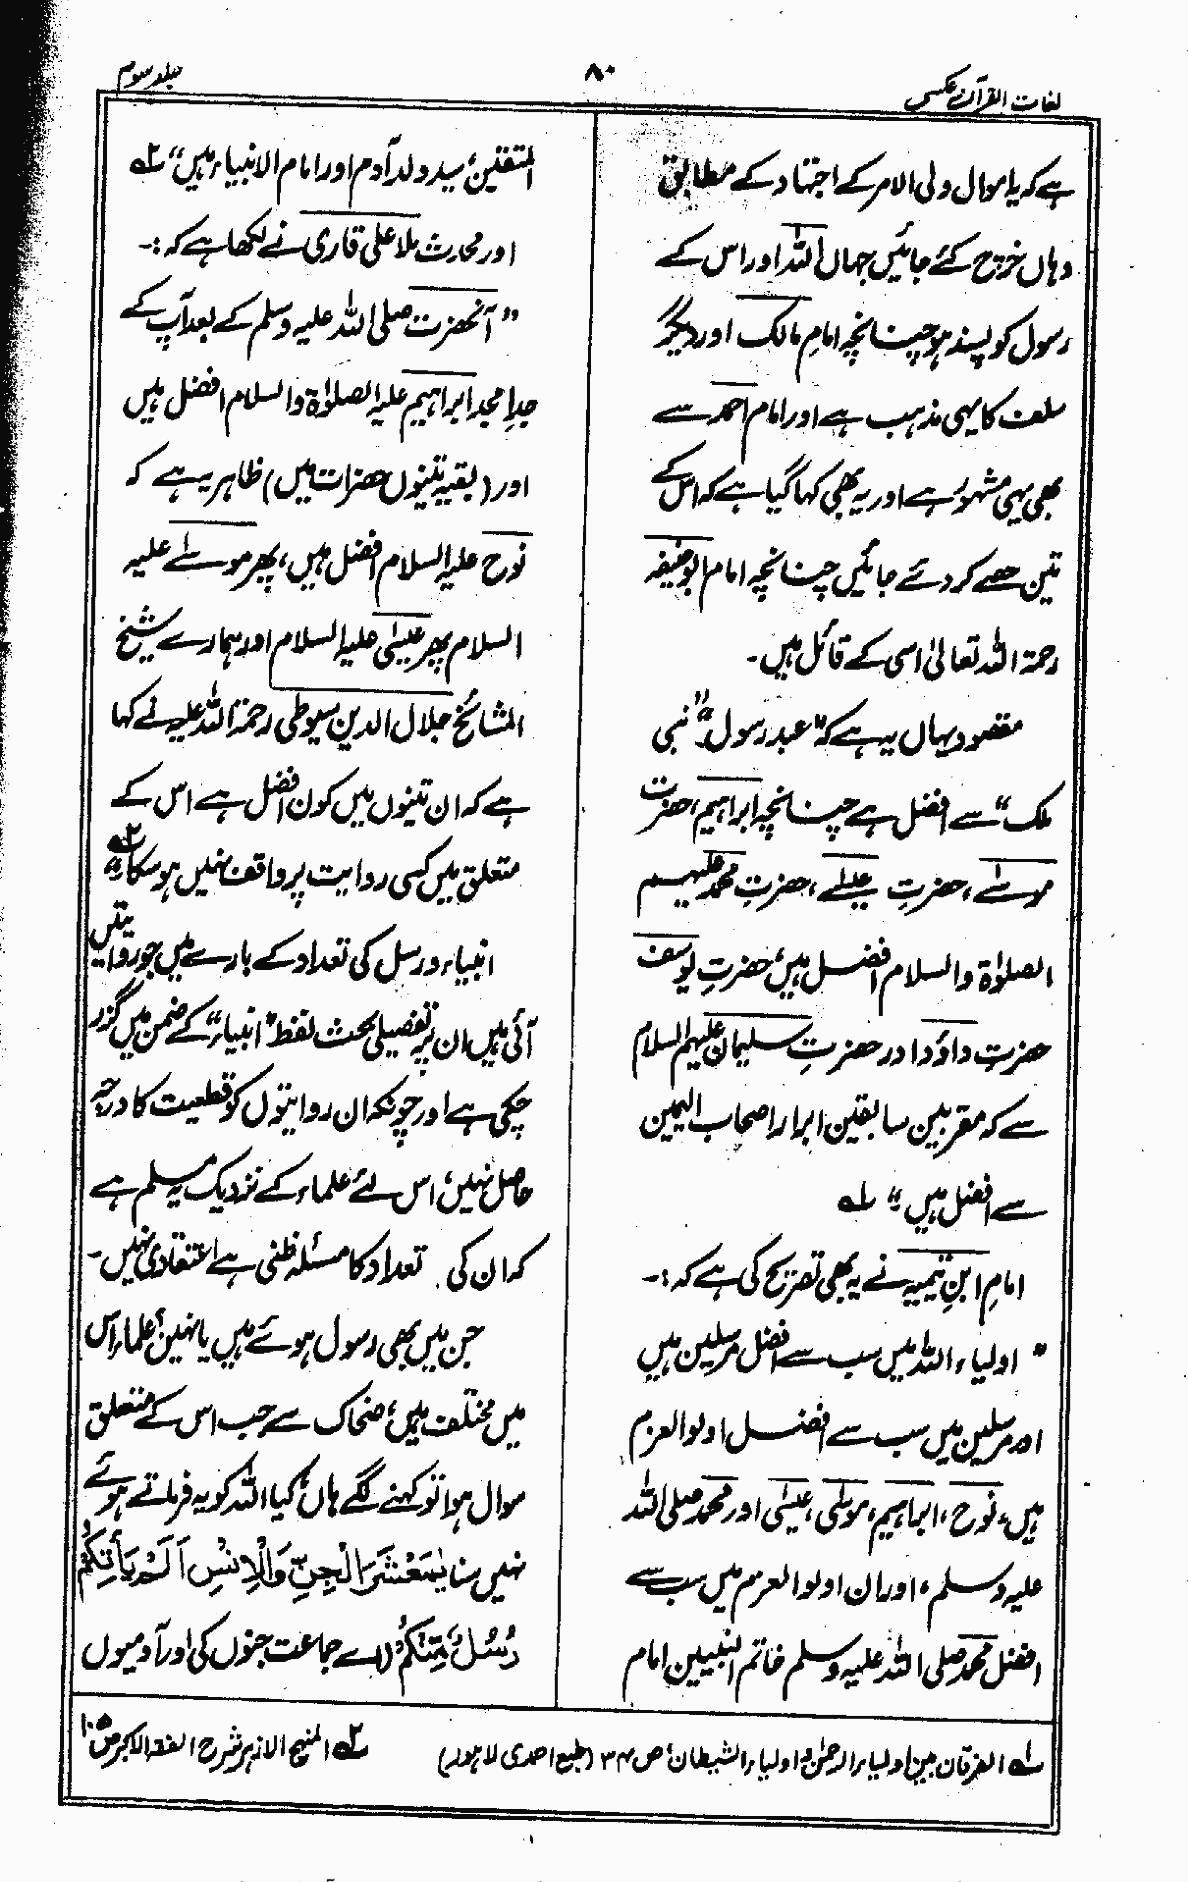 لغات القرآن عکسی
۸۰
جلد سوم
ہے کہ یا موال ولی الامر کے اجتہاد کے مطابق
وہاں خرچ کئے جائیں جہاں اللہ اور اس کے
رسول کو پسند ہو چنانچہ امامِ مالک اور دیگر
سلف کا یہی مذہب ہے اور امام احمد سے
بھی یہی مشہور ہے اور یہ بھی کہا گیا ہے کہ اس کے
تین حصے کر دئے جائیں چنانچہ امام ابو حنیفہ
رحمۃ اللہ تعالیٰ اسی کے قائل ہیں۔
مقصود یہاں یہ ہے کہ "عبد رسول" "نبی
ملک" سے افضل ہے چنانچہ ابراہیم، حضرت
موسےٰ، حضرتِ عیسےٰ، حضرتِ محمد علیہم
الصلوٰۃ والسلام افضل ہیں، حضرتِ یوسف
حضرتِ داؤد اور حضرتِ سلیمان علیہم السلام
سے کہ مقربین سابقین ابرار اصحاب الیمین
سے افضل ہیں" ۱ھ
امامِ ابنِ تیمیہ نے یہ بھی تصریح کی ہے کہ:۔
" اولیاء اللہ میں سب سے افضل مرسلین ہیں
اور مرسلین میں سب سے افضل اولوا العزم
ہیں، نوح، ابراہیم، موسٰی، عیسٰی اور محمد صلی اللہ
علیہ وسلم، اور ان اولوا العزم میں سب سے
افضل محمد صلی اللہ علیہ وسلم خاتم النبیین امام
المتقین، سید ولد آدم اور امام الانبیاء ہیں" ۲ھ
اور محدث ملا علی قاری نے لکھا ہے کہ:۔
" آنحضرت صلی اللہ علیہ وسلم کے بعد آپ کے
جدِ امجد ابراہیم علیہ الصلوٰۃ والسلام افضل ہیں
اور (بقیہ تینوں حضرات میں) ظاہر یہ ہے کہ
نوح علیہ السلام افضل ہیں، پھر موسےٰ علیہ
السلام پھر عیسٰی علیہ السلام اور ہمارے شیخ
المشائخ جلال الدین سیوطی رحمۃ اللہ علیہ نے کہا
ہے کہ ان تینوں میں کون افضل ہے اس کے
متعلق میں کسی روایت پر واقف نہیں ہو سکا" ۲ھ
انبیاء و رسل کی تعداد کے بارے میں جو روایتیں
آئی ہیں ان پر تفصیلی بحث لفظ "انبیاء" کے ضمن میں گزر
چکی ہے اور چونکہ ان روایتوں کو قطعیت کا درجہ
حاصل نہیں، اس لئے علماء کے نزدیک یہ مسلم ہے
کہ ان کی تعداد کا مسئلہ ظنی ہے اعتقادی نہیں۔
جن میں بھی رسول ہوئے ہیں یا نہیں؟ علماء اس
میں مختلف ہیں، ضحاک سے جب اس کے متعلق
سوال ہوا تو کہنے لگے ہاں، کیا اللہ کو یہ فرماتے ہوئے
نہیں سنا یٰمَعْشَرَ الْجِنِّ وَالْاِنْسِ اَلَمْ یَأْتِکُمْ
رُسُلٌ مِّنْکُمْ (اے جماعت جنوں کی اور آدمیوں
۱ھ الفرقان بین اولیاء الرحمٰن و اولیاء الشیطان، ص ۳۴ (طبع احمدی لاہور)
۲ھ المنہج الازہر شرح الفقہ الاکبر ص ۱۰۵